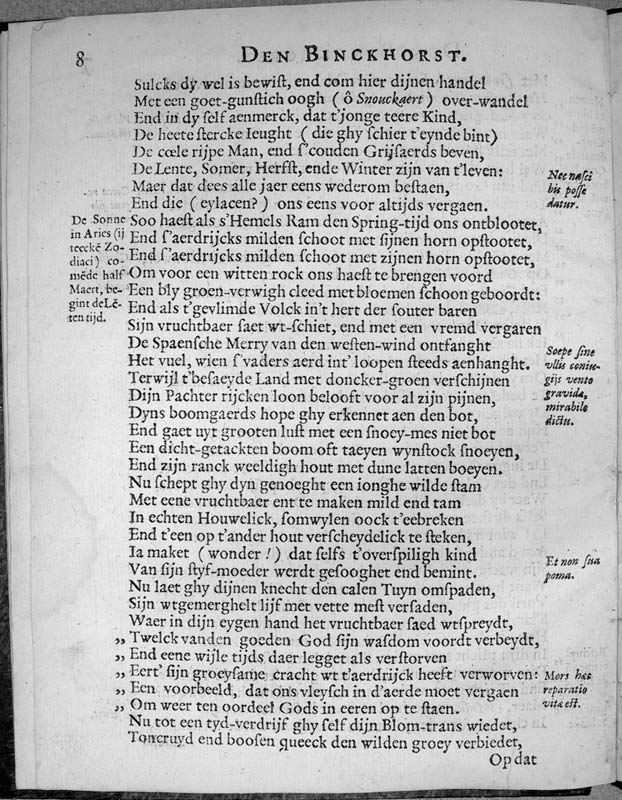 8 DEN BINCKHORST.
Sulcks dy wel is bewiſt, end com hier dijnen handel
Met een goet-gunſtich oogh ( ô Snouckaert ) over-wandel
End in dy ſelf aenmerck, dat t'jonge teere Kind,
De heete ſtercke Ieught ( die ghy ſchier t'eynde bint)
De cœle rijpe Man, end ſ'couden Grijſaerds beven,
De Lente, Somer, Herfſt, ende Winter zijn van t'leven:
Maer dat dees alle jaer eens wederom beſtaen,
End die ( eylacen? ) ons eens voor altijds vergaen.
Nec naſci
bis poſſe
datur.
De Sonne
in Aries (ij
teecké Zo-
diaci) co-
mēde half
Maert, be-
gint deLē-
ten tijd.
Soo haeſt als s'Hemels Ram den Spring-tijd ons ontblootet,
End ſ'aerdrijcks milden ſchoot met ſijnen horn opſtootet,
End ſ'aerdrijcks milden ſchoot met zijnen horn opſtootet,
Om voor een witten rock ons haeſt te brengen voord
Een bly groen-verwigh cleed met bloemen ſchoon geboordt:
End als t'gevlimde Volck in't hert der ſouter baren
Sijn vruchtbaer ſaet wt-ſchiet, end met een vremd vergaren
De Spaenſche Merry van den weſten-wind ontfanght
Het vuel, wien ſ'vaders aerd int' loopen ſteeds aenhanght.
Terwijl t'beſaeyde Land met doncker-groen verſchijnen
Dijn Pachter rijcken loon belooft voor al zijn pijnen,
Dyns boomgaerds hope ghy erkennet aen den bot,
End gaet uyt grooten luſt met een ſnoey-mes niet bot
Een dicht-getackten boom oft taeyen wynſtock ſnoeyen,
End zijn ranck weeldigh hout met dune latten boeyen.
Soepe ſine
vllis coniu-
gijs vento
gravidæ,
mirabile
dictu.
Nu ſchept ghy dyn genoeght een ionghe wilde ſtam
Met eene vruchtbaer ent te maken mild end tam
In echten Houwelick, ſomwylen oock t'eebreken
End t'een op t'ander hout verſcheydelick te ſteken,
Ia maket ( wonder! ) dat ſelfs t'overſpiligh kind
Van ſijn ſtyf-moeder werdt geſooghet end bemint.
Et non ſua
poma.
Nu laet ghy dijnen knecht den calen Tuyn omſpaden,
Sijn wtgemerghelt lijf met vette meſt verſaden,
Waer in dijn eygen hand het vruchtbaer ſaed wtſpreydt,
„ Twelck vanden goeden God ſijn waſdom voordt verbeydt,
„ End eene wijle tijds daer legget als verſtorven
„ Eert' ſijn groeyſame cracht wt t'aerdrijck heeft verworven:
„ Een voorbeeld, dat ons vleyſch in d'aerde moet vergaen
„ Om weer ten oordeel Gods in eeren op te ſtaen.
Mors hæc
reparatio
vitæ eſt.
Nu tot een tyd-verdrijf ghy ſelf dijn Blom-trans wiedet,
Toncruyd end booſen queeck den wilden groey verbiedet,
Op dat